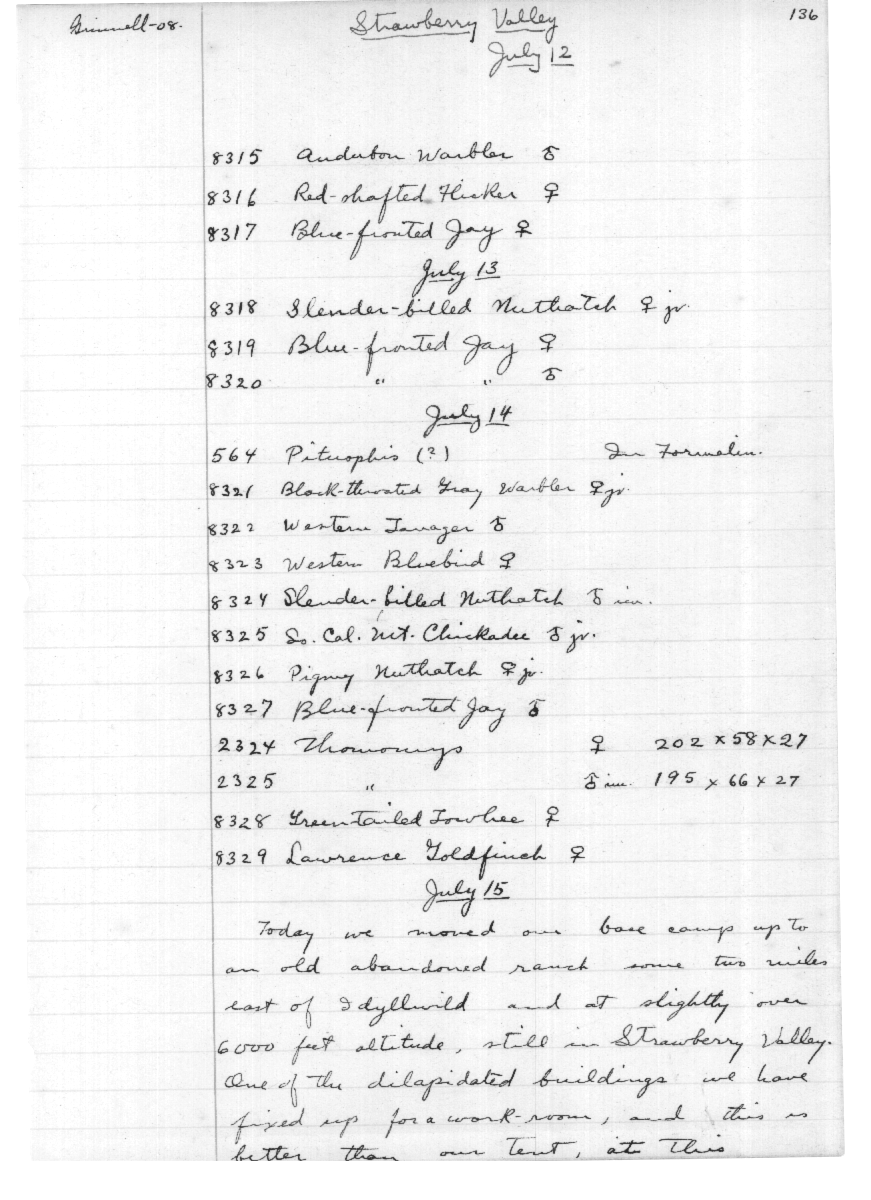 Grinnell-08.
Strawberry Valley
136
July 12
8315 Audubon Warbler ♂
8316 Red-shafted Flicker ♀
8317 Blue-fronted Jay ♀
July 13
8318 Slender-billed Nuthatch ♀ jv.
8319 Blue-fronted Jay ♀
8320 " " ♂
July 14
564 Pituophis (?) In Formalin.
8321 Black-throated Gray Warbler ♀ jv.
8322 Western Tanager ♂
8323 Western Bluebird ♀
8324 Slender-billed Nuthatch ♂ im.
8325 So. Cal. Mt. Chickadee ♂ jv.
8326 Pigmy Nuthatch ♀ jv.
8327 Blue-fronted Jay ♂
2324 Thomomys ♀ 202 x 58 x 27
2325 " ♂ im. 195 x 66 x 27
8328 Green tailed Towhee ♀
8329 Lawrence Goldfinch ♀
July 15
Today we moved our base camp up to
an old abandoned ranch some two miles
east of Idyllwild and at slightly over
6000 feet altitude, still in Strawberry Valley.
One of the dilapidated buildings we have
fixed up for a work-room, and this is
better than our tent, at this